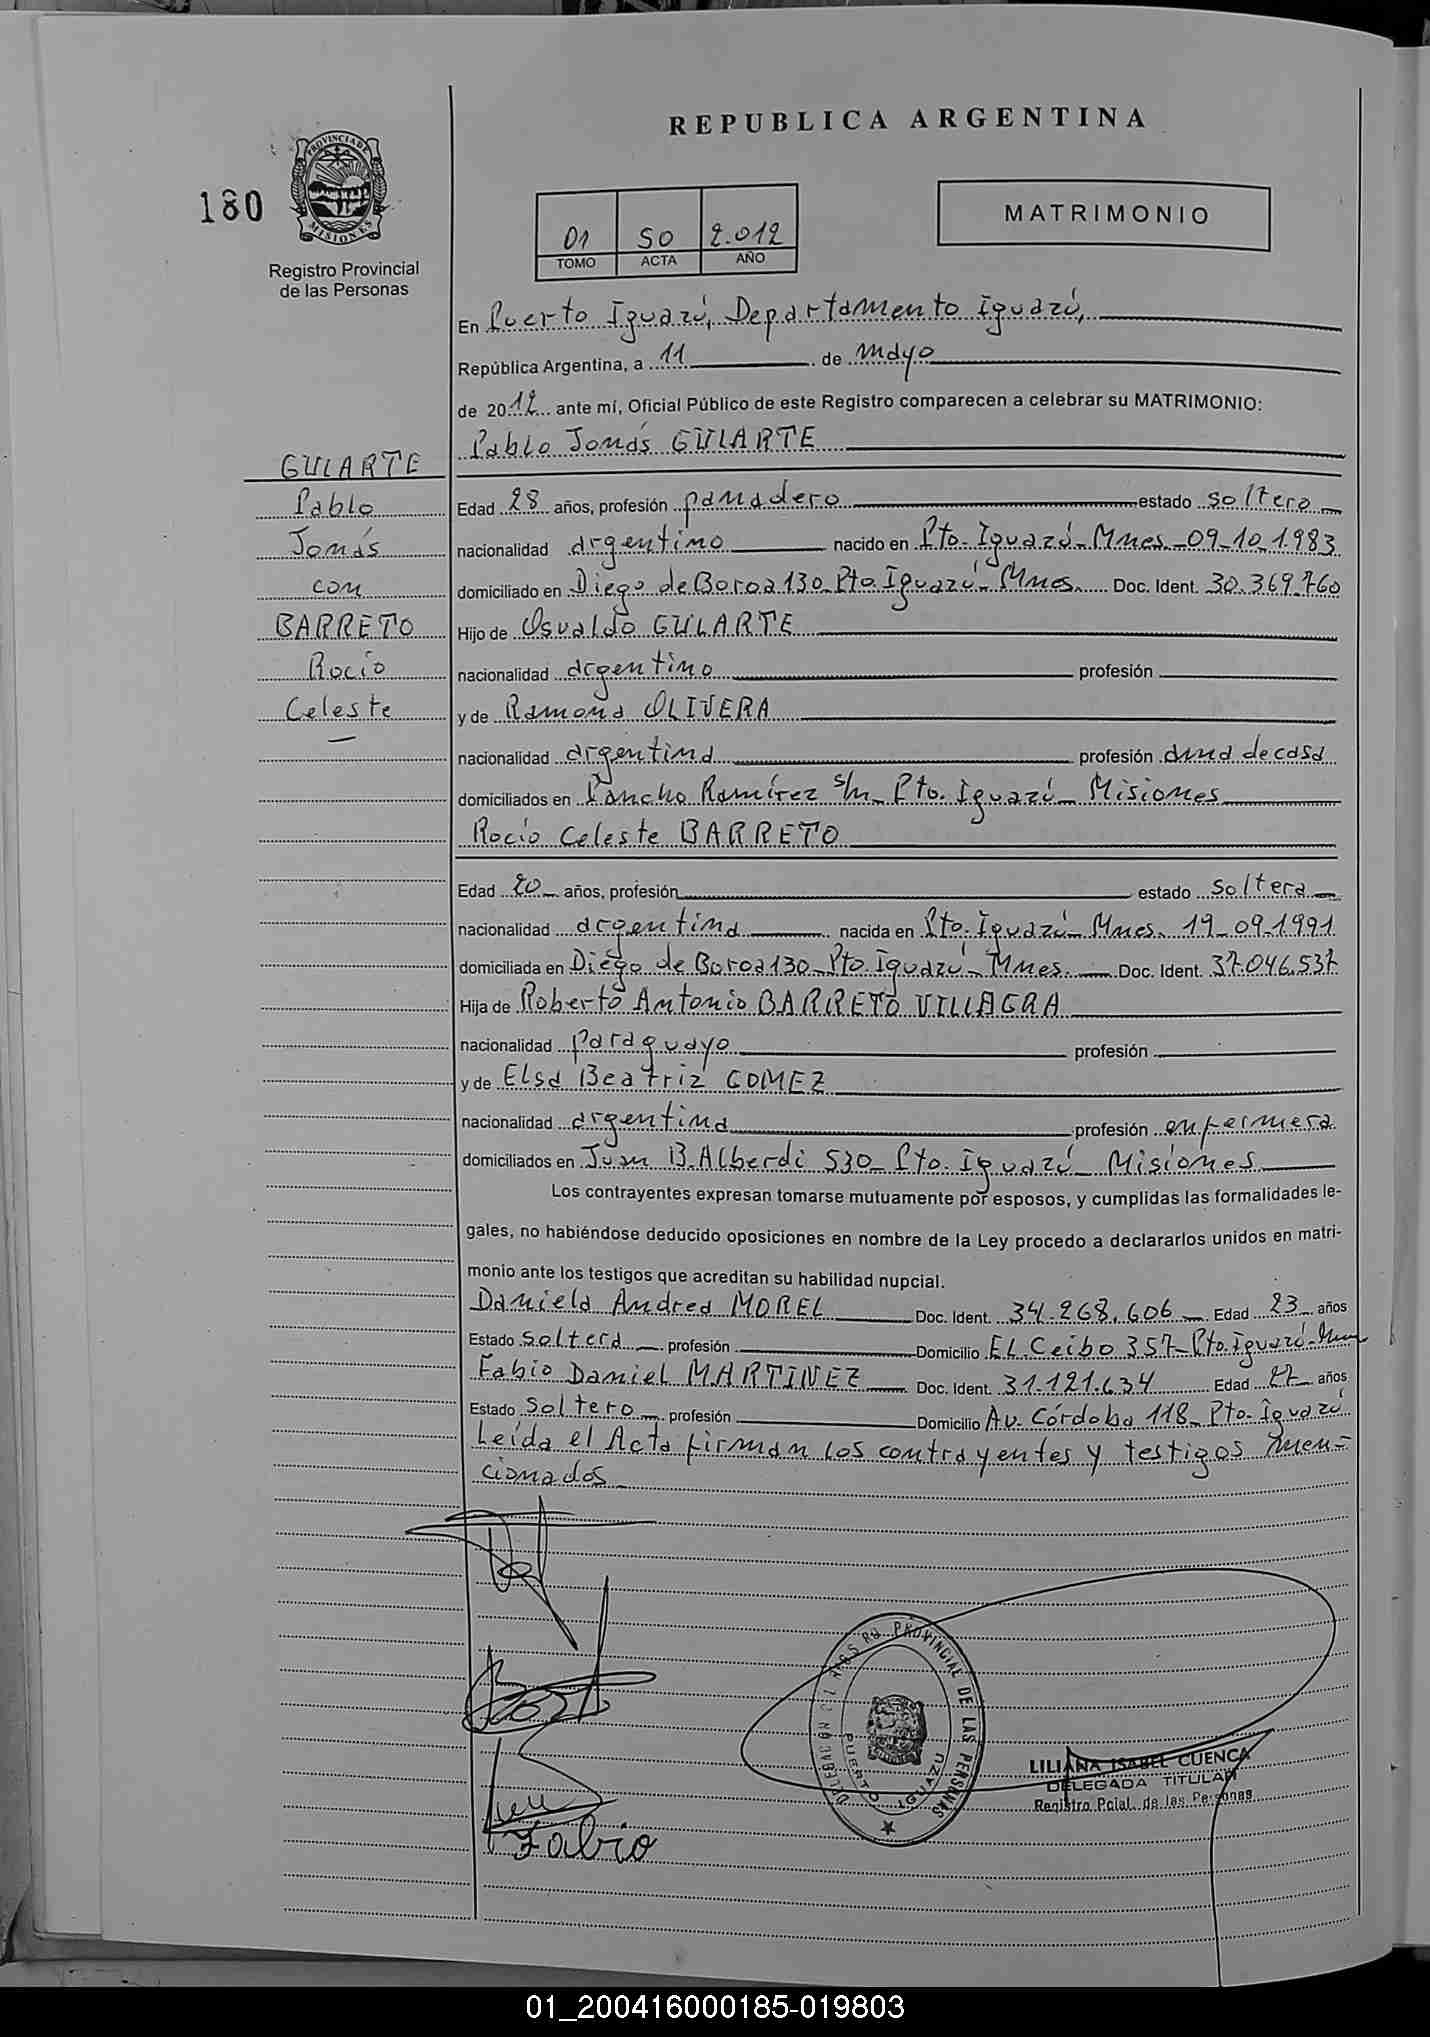 REPUBLICA ARGENTINA
180
PROVINCIA DE MISIONES
Registro Provincial
de las Personas
01 50 2.012
TOMO ACTA AÑO
MATRIMONIO
En Puerto Iguazú, Departamento Iguazú,
República Argentina, a 11 de mayo
de 2012 ante mí, Oficial Público de este Registro comparecen a celebrar su MATRIMONIO:
Pablo Jonás GULARTE
GULARTE
Pablo
Jonás
con
BARRETO
Rocío
Celeste
Edad 28 años, profesión panadero estado soltero
nacionalidad argentino nacido en Pto. Iguazú - Mnes. - 09-10-1983
domiciliado en Diego de Boroa 130 - Pto. Iguazú - Mnes. Doc. Ident. 30.369.760
Hijo de Osvaldo GULARTE
nacionalidad argentino profesión
y de Ramona OLIVERA
nacionalidad argentina profesión ama de casa
domiciliados en Pancho Ramírez s/n - Pto. Iguazú - Misiones
Rocío Celeste BARRETO
Edad 20 años, profesión estado soltera
nacionalidad argentina nacida en Pto. Iguazú - Mnes. 19-09-1991
domiciliada en Diego de Boroa 130 - Pto. Iguazú - Mnes. Doc. Ident. 37.046.537
Hija de Roberto Antonio BARRETO VILLAGRA
nacionalidad paraguayo profesión
y de Elsa Beatriz GOMEZ
nacionalidad argentina profesión enfermera
domiciliados en Juan B. Alberdi 530 - Pto. Iguazú - Misiones
Los contrayentes expresan tomarse mutuamente por esposos, y cumplidas las formalidades le-
gales, no habiéndose deducido oposiciones en nombre de la Ley procedo a declararlos unidos en matri-
monio ante los testigos que acreditan su habilidad nupcial.
Daniela Andrea MOREL Doc. Ident. 34.268.606 Edad 23 años
Estado soltera profesión Domicilio El Ceibo 357 - Pto. Iguazú - Mnes
Fabio Daniel MARTINEZ Doc. Ident. 31.121.634 Edad 27 años
Estado soltero profesión Domicilio Av. Córdoba 118 - Pto. Iguazú
Leída el Acta firman los contrayentes y testigos men-
cionados
DELEGACION DEL REGISTRO PROVINCIAL DE LAS PERSONAS
PUERTO IGUAZU
LILIANA ISABEL CUENCA
DELEGADA TITULAR
Registro Pcial. de las Personas
Fabio
01_200416000185-019803